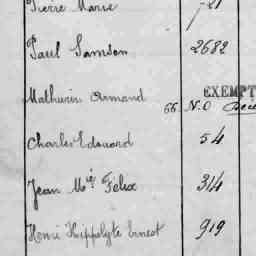 Pierre Marie 721
Paul Samson 2682
EXEMPT
Mathurin Armand 66 N.O
Charles Edouard 54
Jean Mie Félix 314
Henri Hippolyte Ernest 919